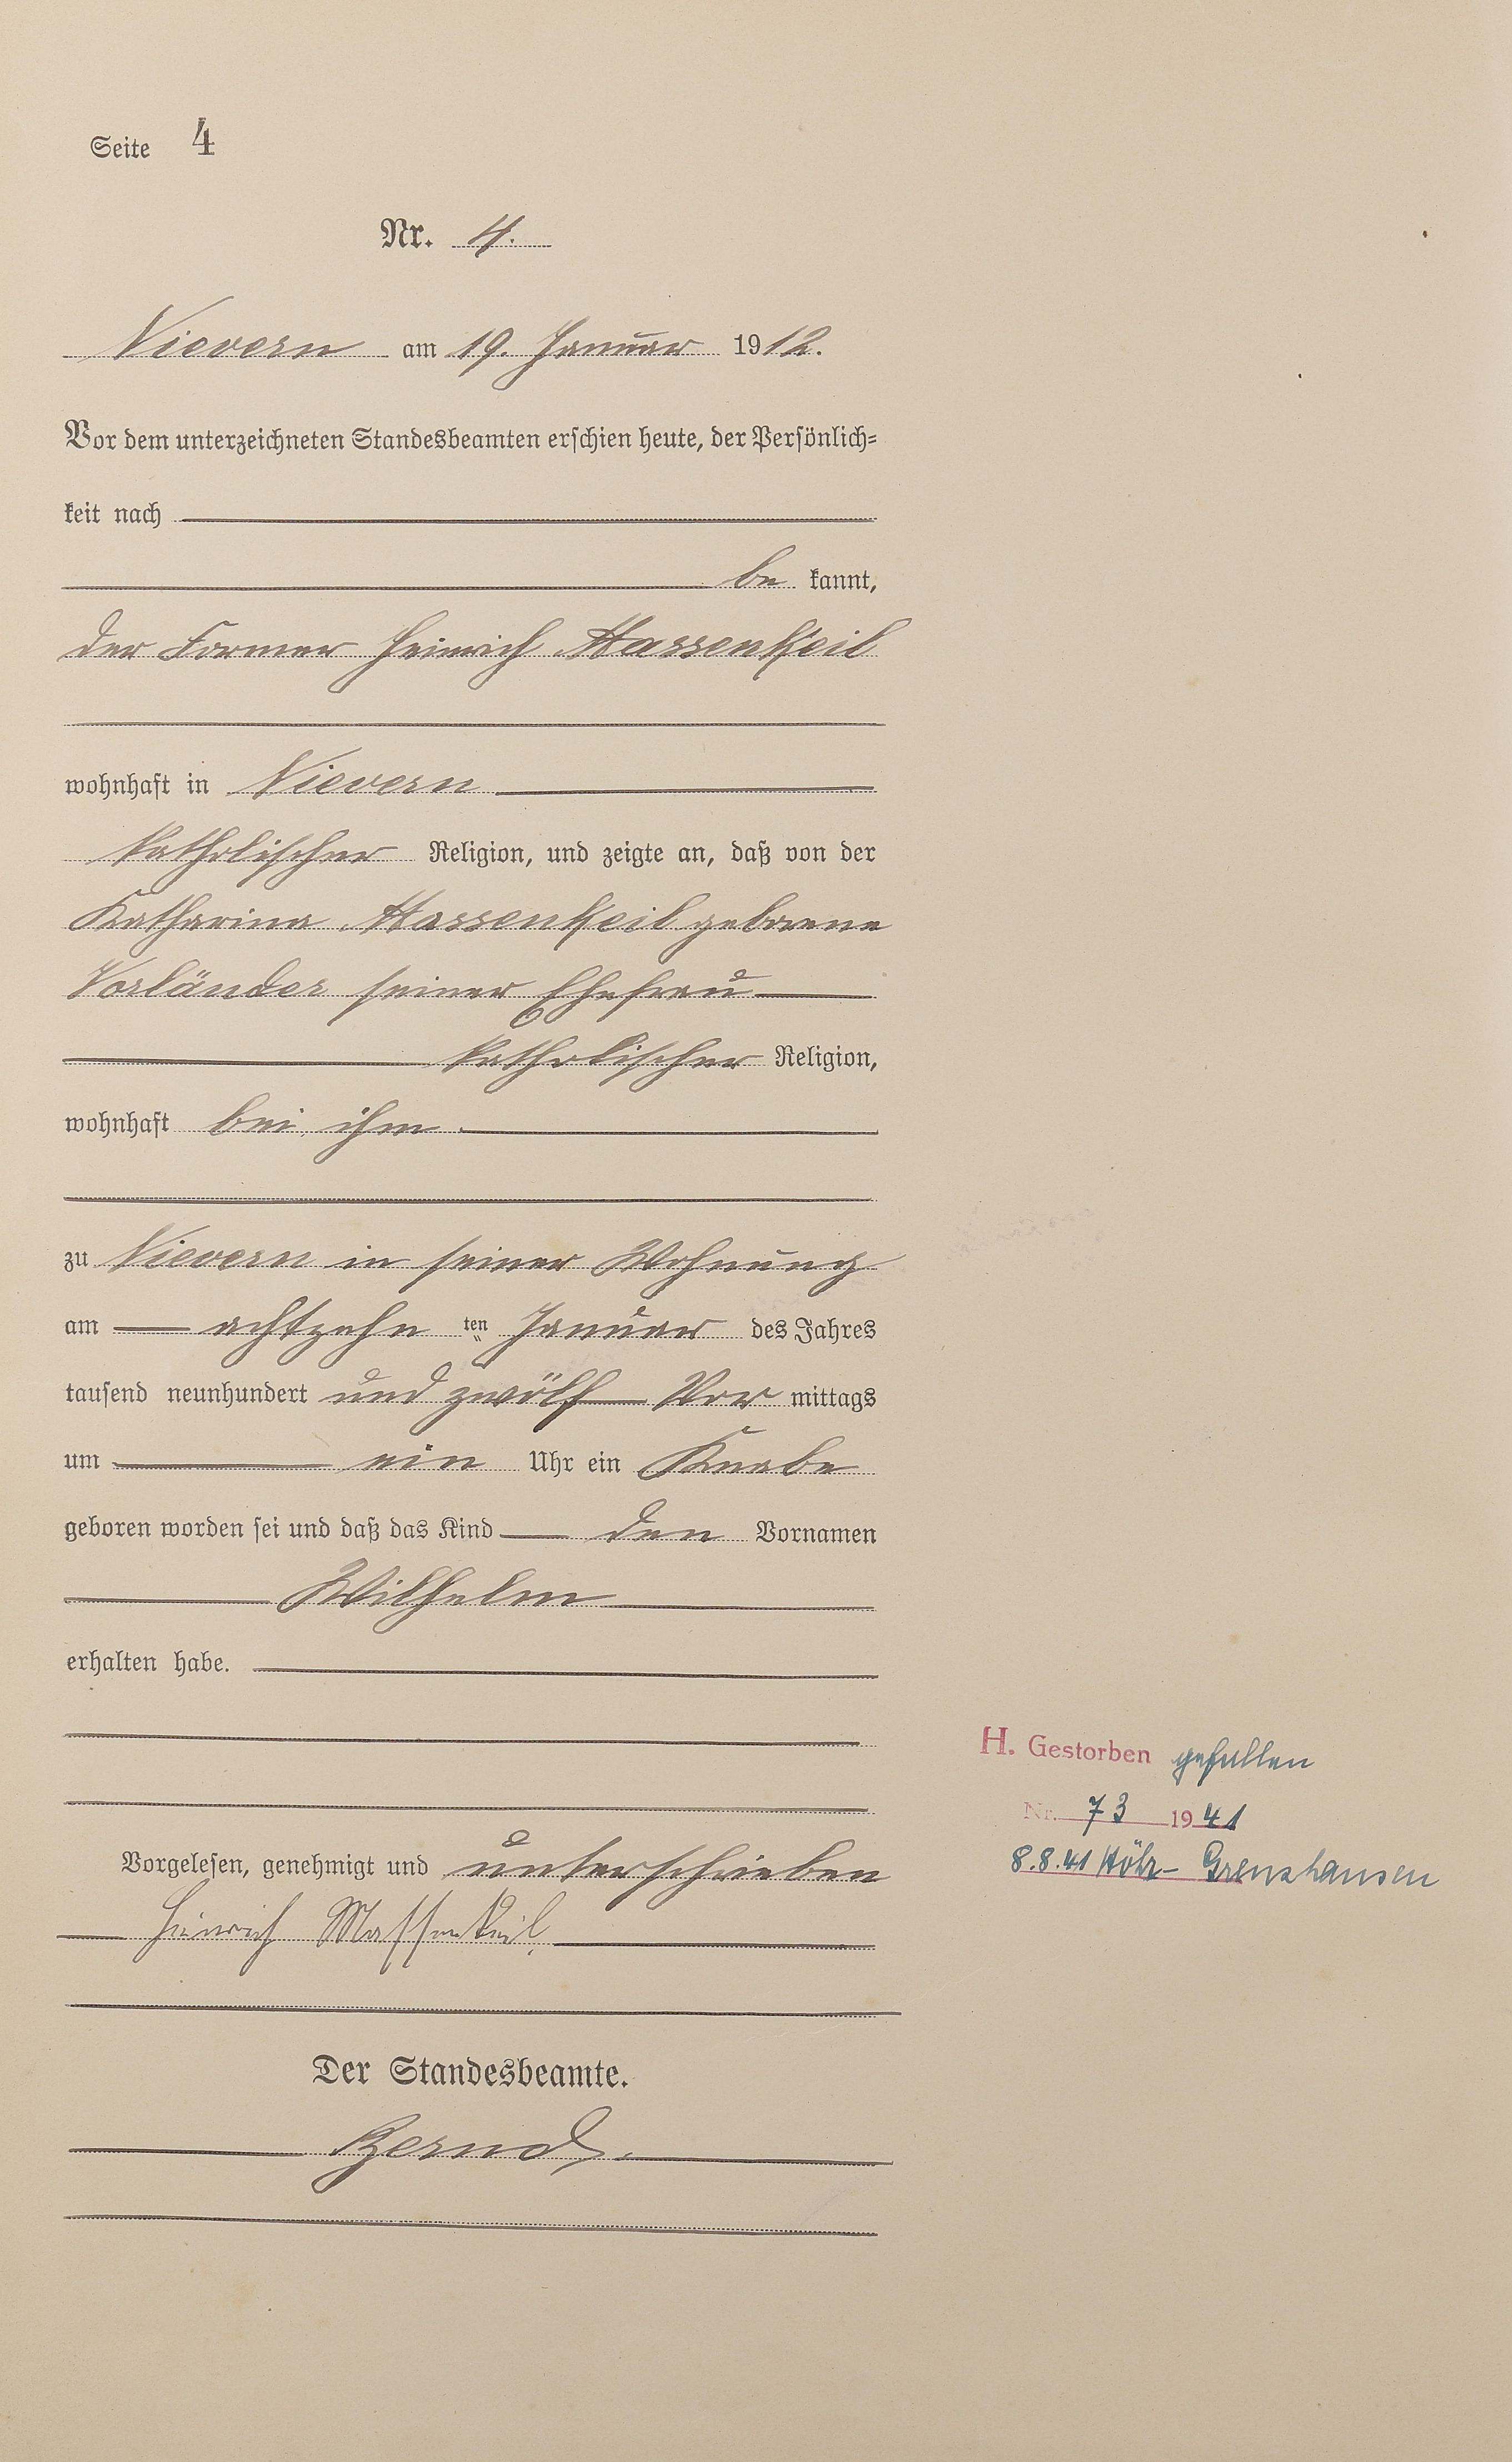 Seite 4
Nr. 4.
Nievern am 19. Januar 1912.
Vor dem unterzeichneten Standesbeamten erschien heute, der Persönlich-
keit nach
be kannt,
der Former Heinrich Massenkeil
wohnhaft in Nievern
katholischer Religion, und zeigte an, daß von der
Katharina Massenkeil geborene
Vorländer seiner Ehefrau
katholischer Religion,
wohnhaft bei ihm
zu Nievern in seiner Wohnung
am achtzehn ten Januar des Jahres
tausend neunhundert und zwölf Vor mittags
um ein Uhr ein Knabe
geboren worden sei und daß das Kind den Vornamen
Wilhelm
erhalten habe.
H. Gestorben gefallen
Nr. 73 1941
8.8.41 Höhr-Grenzhausen
Vorgelesen, genehmigt und unterschrieben
Heinrich Massenkeil
Der Standesbeamte.
Bernd.